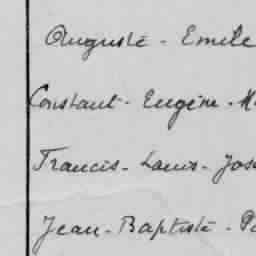 Auguste - Emile
Constant - Eugène - M
Francis - Louis - Jos
Jean - Baptiste - P